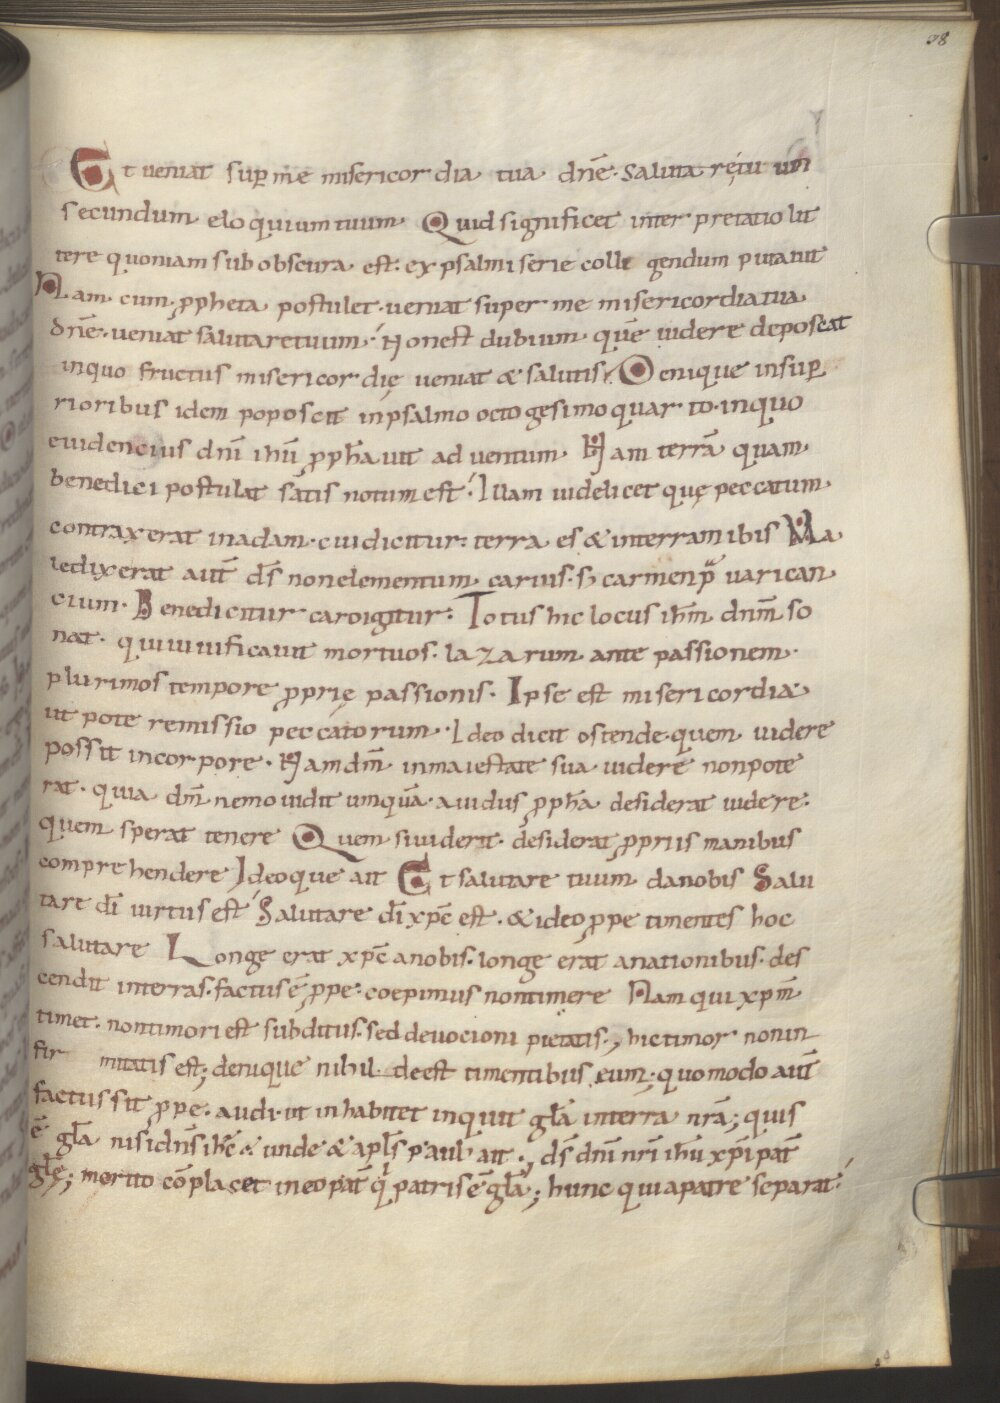 38
Et ueniat sup me misericordia tua dn̄e. Salutare tuum
secundum eloquium tuum. Quid significet inter pretatio lit
tere quoniam sub obscura est. ex psalmi serie colligendum putauit
Nam cum ꝓpheta postulet. ueniat super me misericordia tua
dn̄e. ueniat salutare tuum. Non est dubium quē uidere deposcat
in quo fructus misericordię ueniat & salutis. Denique in sup
rioribus idem poposcit in psalmo octogesimo quarto. in quo
euidencius dn̄i ihū ꝓph̄auit aduentum. Nam terrā quam
benedici postulat satis notum est. Illam uidelicet quę peccatum
contraxerat in adam. cui dicitur. terra es & in terram ibis Ma
ledixerat aut̄ d̄s non elementum carius. s; carmen p̄uarican
cium. Benedicitur caro igitur. Totus hic locus ih̄m dn̄m so
nat. qui uiuificauit mortuos. lazarum ante passionem.
plurimos tempore ꝓprię passionis. Ipse est misericordia
ut pote remissio peccatorum. Ideo dicit ostende. quem uidere
possit in corpore. Nam dm̄ in maiestate sua uidere non pote
rat. quia dm̄ nemo uidit umquā. auidus ꝓph̄a desiderat uidere.
quem sperat tenere Quem si uiderit. desiderat ꝓpriis manibus
comprehendere Ideoque ait Et salutare tuum da nobis Salu
tare d̄i uirtus est Salutare d̄i xp̄c est. & ideo ꝓpe timentes hoc
salutare Longe erat xp̄c a nobis. longe erat a nationibus. des
cendit in terras. factus ē ꝓpe. coepimus non timere Nam qui xp̄m
timet. non timori est subditus. sed deuocioni pietatis; hic timor non in
fir mitatis est; denique nihil deest timentibus eum. quomodo aut̄
factus sit ꝓpe. audi. ut inhabitet inquit gl̄a in terra nr̄a; quis
ē gl̄a nisi dn̄s ih̄c. unde & apl̄s paul̄ ait.; d̄s dn̄i nr̄i ihū xp̄i pat̄
gl̄ę; merito cōplacet in eo pat̄ q̄ patris ē gl̄a; hunc qui a patre separat.